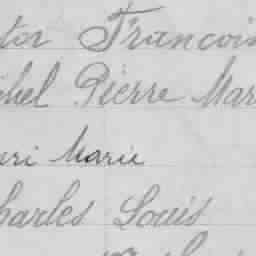 tor Francois
chel Pierre Mar
uri Marie
harles Louis